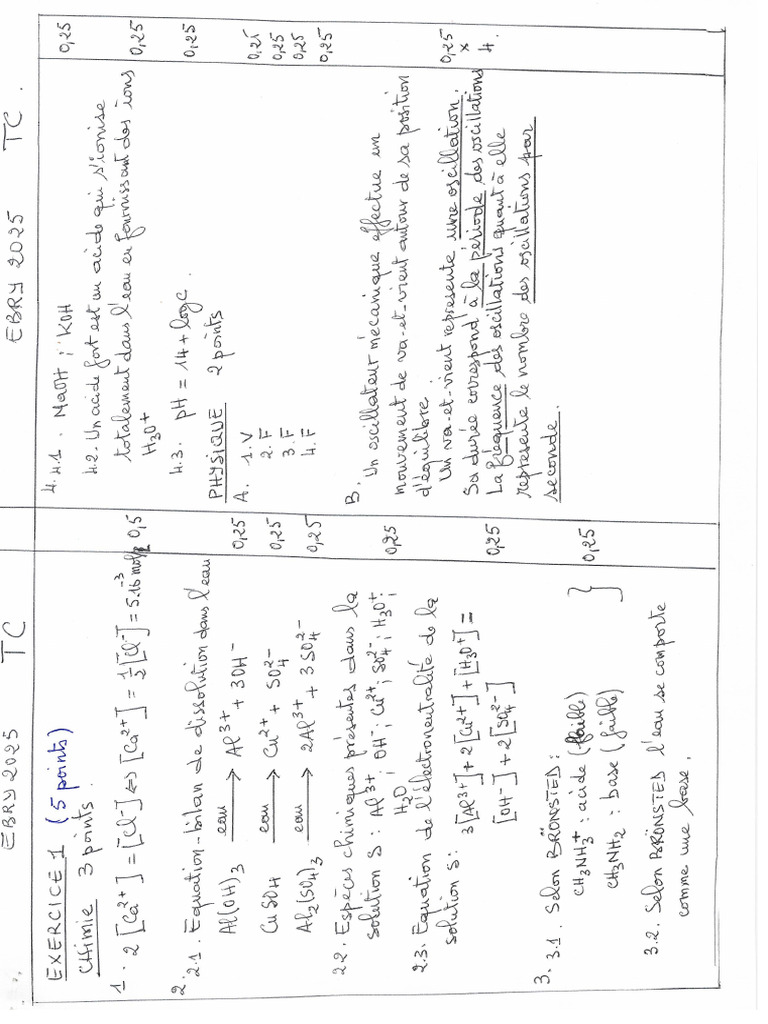 EBRY 2025 TC
EXERCICE 1 (5 points)
CHimie 3 points.
1. 2[Ca²⁺] = [Cl⁻] ⇔ [Ca²⁺] = ½[Cl⁻] = 5.16⁻³ mol/L 0,5
2.
2.1. Equation-bilan de dissolution dans l'eau
Al(OH)₃ —eau→ Al³⁺ + 3OH⁻ 0,25
CuSOH —eau→ Cu²⁺ + SO₄²⁻ 0,25
Al₂(SO₄)₃ —eau→ 2Al³⁺ + 3SO₄²⁻ 0,25
2.2. Espèces chimiques présentes dans la
solution S : Al³⁺ ; OH⁻ ; Cu²⁺ ; SO₄²⁻ ; H₃O⁺ ; 0,25
H₂O
2.3. Equation de l'électroneutralité de la
solution S :
3[Al³⁺] + 2[Cu²⁺] + [H₃O⁺] = 0,25
[OH⁻] + 2[SO₄²⁻]
3.
3.1. Selon BRÖNSTED :
CH₃NH₃⁺ : acide (faible)
CH₃NH₂ : base (faible) } 0,25
3.2. Selon BRÖNSTED l'eau se comporte
comme une base.
EBRY 2025 TC.
4.4.1. NaOH ; KOH 0,25
4.2. Un acide fort est un acide qui s'ionise
totalement dans l'eau en fournissant des ions 0,25
H₃O⁺
4.3. pH = 14 + log C. 0,25
PHYSIQUE 2 points
A. 1. V 0,25
2. F 0,25
3. F 0,25
4. F 0,25
B.
Un oscillateur mécanique effectue un
mouvement de va-et-vient autour de sa position
d'équilibre.
Un va-et-vient représente une oscillation. 0,25
Sa durée correspond à la période des oscillations x
La fréquence des oscillations quant à elle 4.
représente le nombre des oscillations par
seconde.